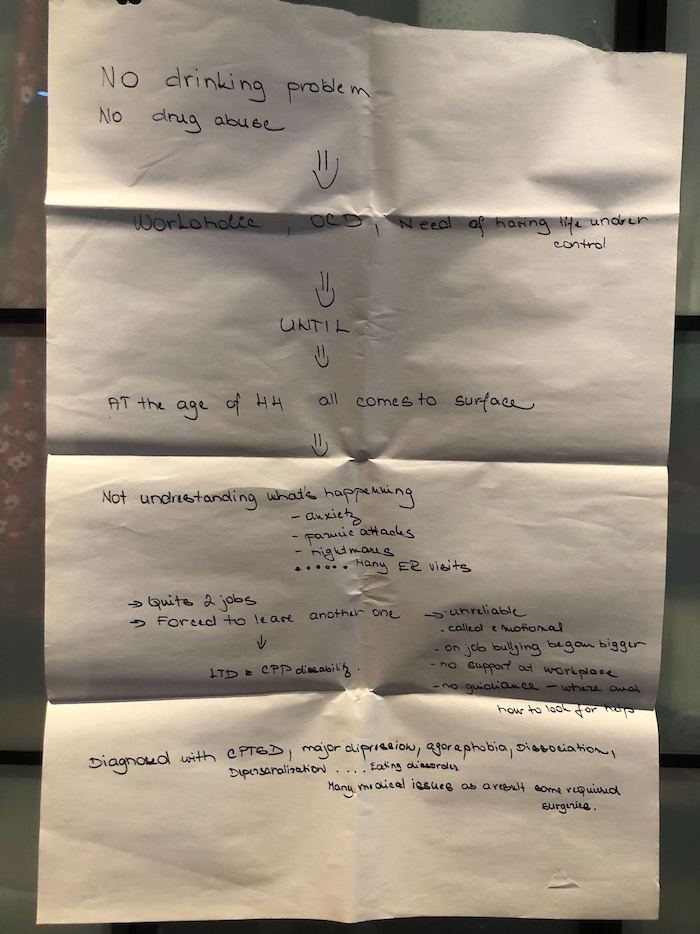 NO drinking problem
No drug abuse
⇓
Workoholic, OCD, Need of having life under
control
⇓
UNTIL
⇓
AT the age of 44 all comes to surface
⇓
Not undrestanding what's happenning
- anxiety
- panic attacks
- nightmares
...... Many ER visits
→ Quits 2 jobs
→ Forced to leave another one
↓
LTD & CPP disability.
→ . unreliable
. called emotional
. on job bullying began bigger
- no support at workplace
- no guidiance - where and
how to look for help
Diagnosed with CPTSD, major dipression, agoraphobia, Dissociation,
Dipersanalization .... Eating dissorder
Many medical issues as a result some required
surgeries.